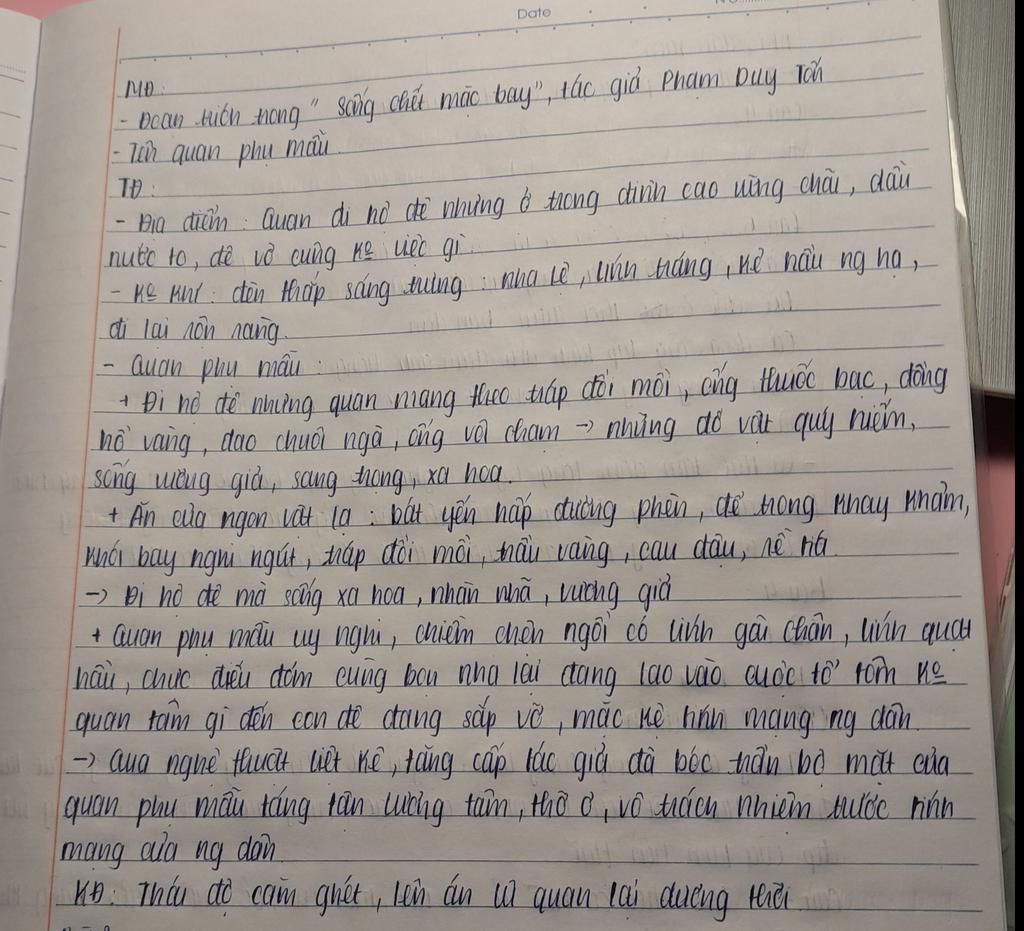 Date
MĐ:
- Đoạn trích trong "Sống chết mặc bay", tác giả Phạm Duy Tốn
- Tên quan phụ mẫu.
TĐ:
- Địa điểm: Quan đi hộ đê nhưng ở trong đình cao vững chãi, dẫu
nước to, đê vỡ cũng ko việc gì.
- Ko khí: đèn thắp sáng trưng: nha lệ, lính tráng, kẻ hầu ng hạ,
đi lại rộn ràng.
- Quan phụ mẫu:
+ Đi hộ đê nhưng quan mang theo tráp đồi mồi, ống thuốc bạc, đồng
hồ vàng, dao chuôi ngà, ống vôi chạm → những đồ vật quý hiếm,
sống vương giả, sang trọng, xa hoa.
+ Ăn của ngon vật lạ: bát yến hấp đường phèn, để trong khay khảm,
khói bay nghi ngút, tráp đồi mồi, trầu vàng, cau đậu, rễ tía
→ Đi hộ đê mà sống xa hoa, nhàn nhã, vương giả
+ Quan phụ mẫu uy nghi, chiễm chện ngồi có lính gãi chân, lính quạt
hầu, chực điếu đóm cùng bọn nha lại đang lao vào cuộc tổ tôm ko
quan tâm gì đến con đê đang sắp vỡ, mặc kệ tính mạng ng dân.
→ Qua nghệ thuật liệt kê, tăng cấp tác giả đã bóc trần bộ mặt của
quan phụ mẫu táng tận lương tâm, thờ ơ, vô trách nhiệm trước tính
mạng của ng dân.
KĐ: Thái độ căm ghét, lên án lũ quan lại đương thời.